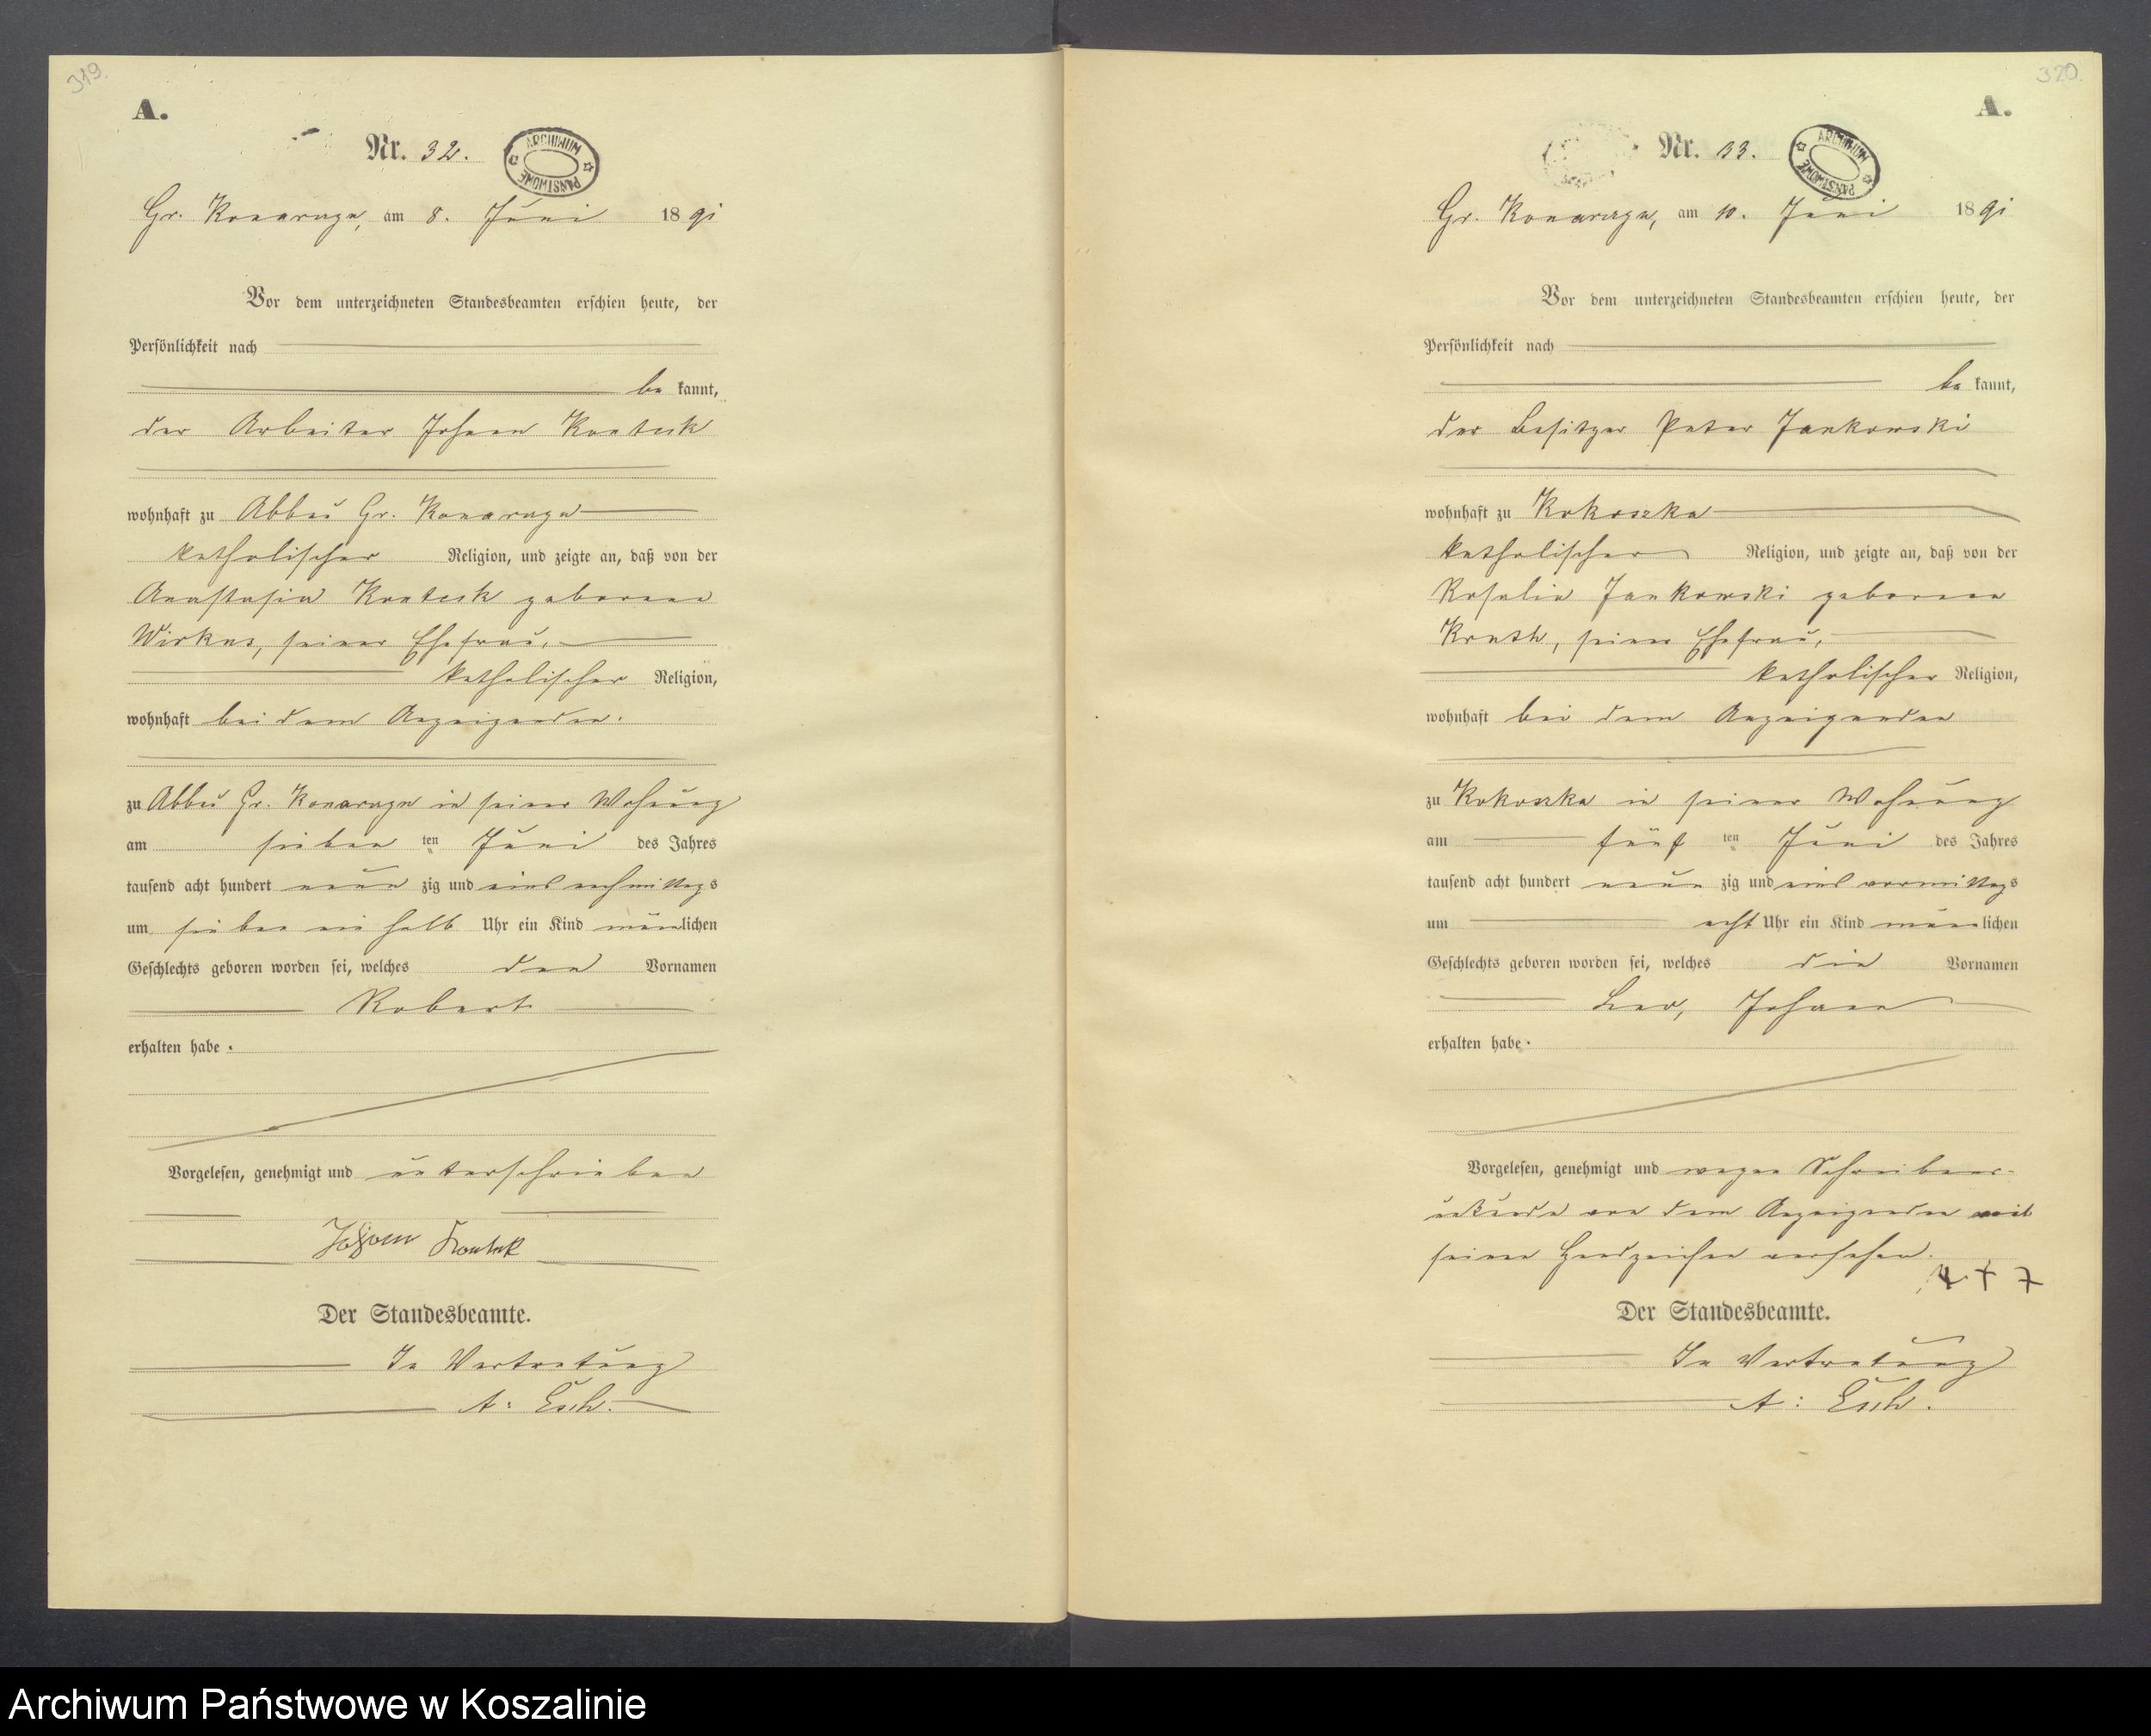 319.
A.
Nr. 32.
ARCHIWUM PAŃSTWOWE
Gr. Konarczyn, am 8. Juni 1891
Vor dem unterzeichneten Standesbeamten erschien heute, der
Persönlichkeit nach
be kannt,
der Arbeiter Johann Kontek
wohnhaft zu Abbau Gr. Konarczyn
katholischer Religion, und zeigte an, daß von der
Anastasia geborene
Wirkus, seiner Ehefrau,
katholischer Religion,
wohnhaft bei dem Anzeigenden.
zu Abbau Gr. Konarczyn in seiner Wohnung
am sieben ten Juni des Jahres
tausend acht hundert neun zig und eins nachmittags
um sieben ein halb Uhr ein Kind männlichen
Geschlechts geboren worden sei, welches den Vornamen
Robert
erhalten habe.
Vorgelesen, genehmigt und unterschrieben
Johann
Der Standesbeamte.
In Vertretung
A: Esch.
320.
A.
Nr. 33.
ARCHIWUM PAŃSTWOWE
Gr. Konarczyn, am 10. Juni 1891
Vor dem unterzeichneten Standesbeamten erschien heute, der
Persönlichkeit nach
be kannt,
der Besitzer Peter Jankowski
wohnhaft zu Kokoszka
katholischer Religion, und zeigte an, daß von der
Rosalia Jankowski geborene
seiner Ehefrau,
katholischer Religion,
wohnhaft bei dem Anzeigenden
zu Kokoszka in seiner Wohnung
am fünf ten Juni des Jahres
tausend acht hundert neun zig und eins vormittags
um acht Uhr ein Kind männlichen
Geschlechts geboren worden sei, welches die Vornamen
Leo, Johann
erhalten habe.
Vorgelesen, genehmigt und wegen Schreibens-
unkunde von dem Anzeigenden mit
seinen Handzeichen versehen.
+ + +
Der Standesbeamte.
In Vertretung
A: Esch.
Archiwum Państwowe w Koszalinie